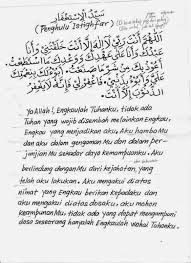 سيّد الإستغفار
(Penghulu Istighfar)
اللهم أنت ربي لا إله إلا أنت خلقتني وأنا
عبدك وأنا على عهدك ووعدك ما استطعت
أعوذ بك من شر ما صنعت أبوء لك بنعمتك
علي وأبوء بذنبي فاغفرلي فإنه لا يغفر
الذنوب إلا أنت
Ya Allah!, Engkaulah Tuhanku, tidak ada
Tuhan yang wajib disembah melainkan Engkau,
Engkau yang menjadikan aku. Aku hamba Mu
dan aku dalam genggaman Mu dan dalam per-
janjian Mu sekadar daya kemampuanku. Aku
berlindung dengan Mu dari kejahatan, yang
telah aku lakukan. Aku mengakui diatas
nikmat yang Engkau berikan kepadaku dan
aku mengakui diatas dosaku, aku mohon
keampunan Mu, tidak ada yang dapat mengampuni
dosa seseorang hanyalah Engkaulah wahai Tuhanku.